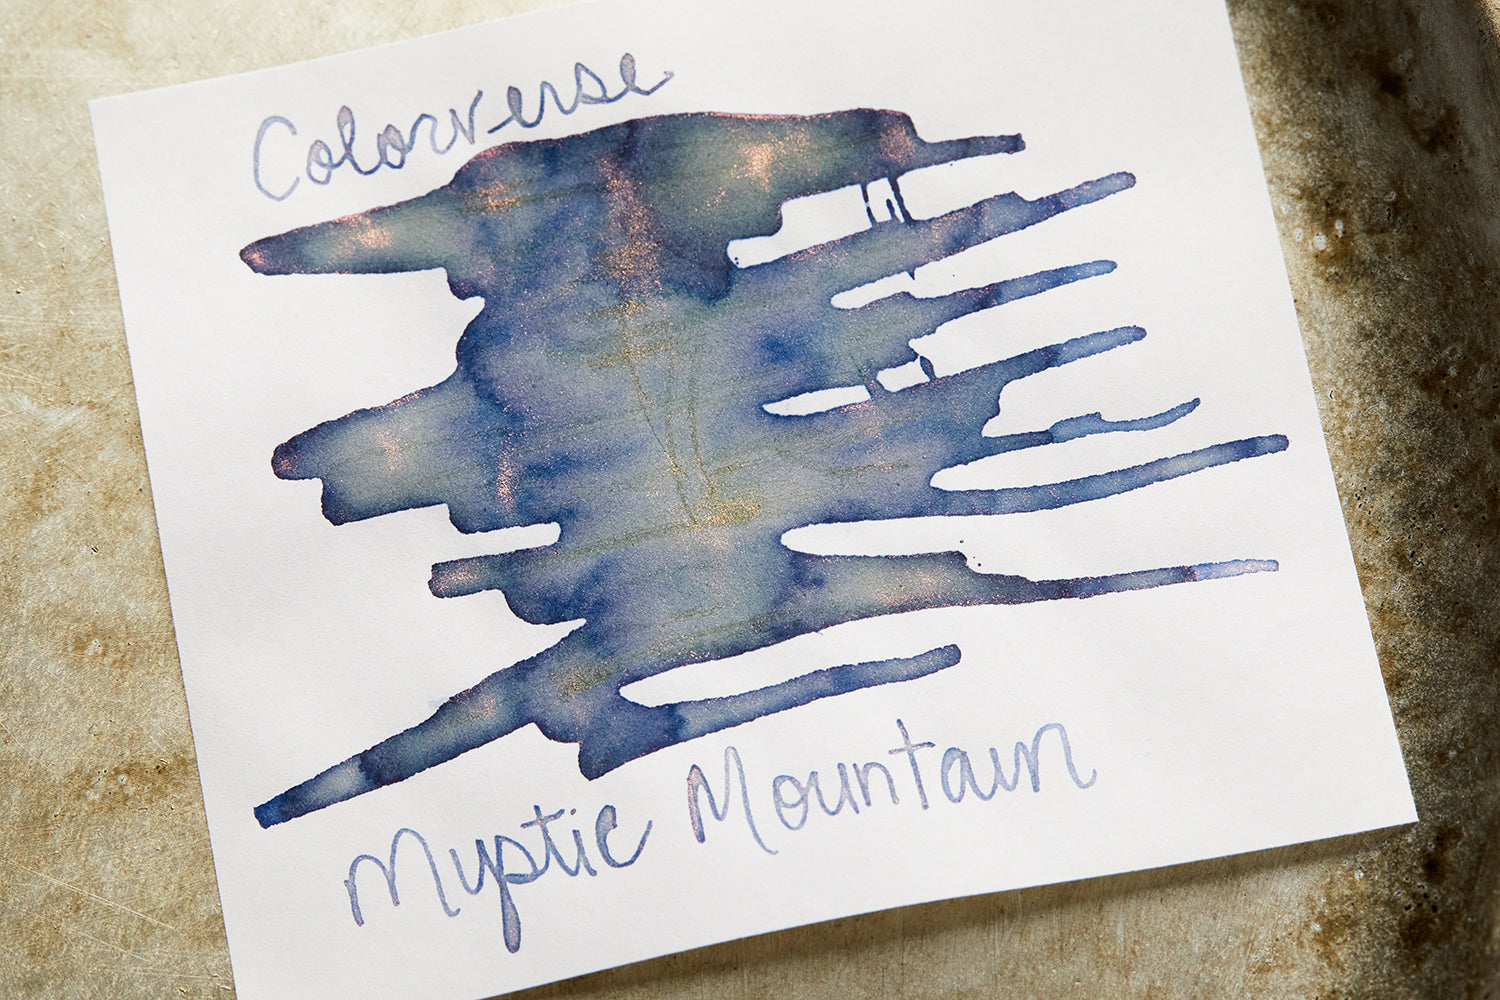 Colorverse
Mystic Mountain